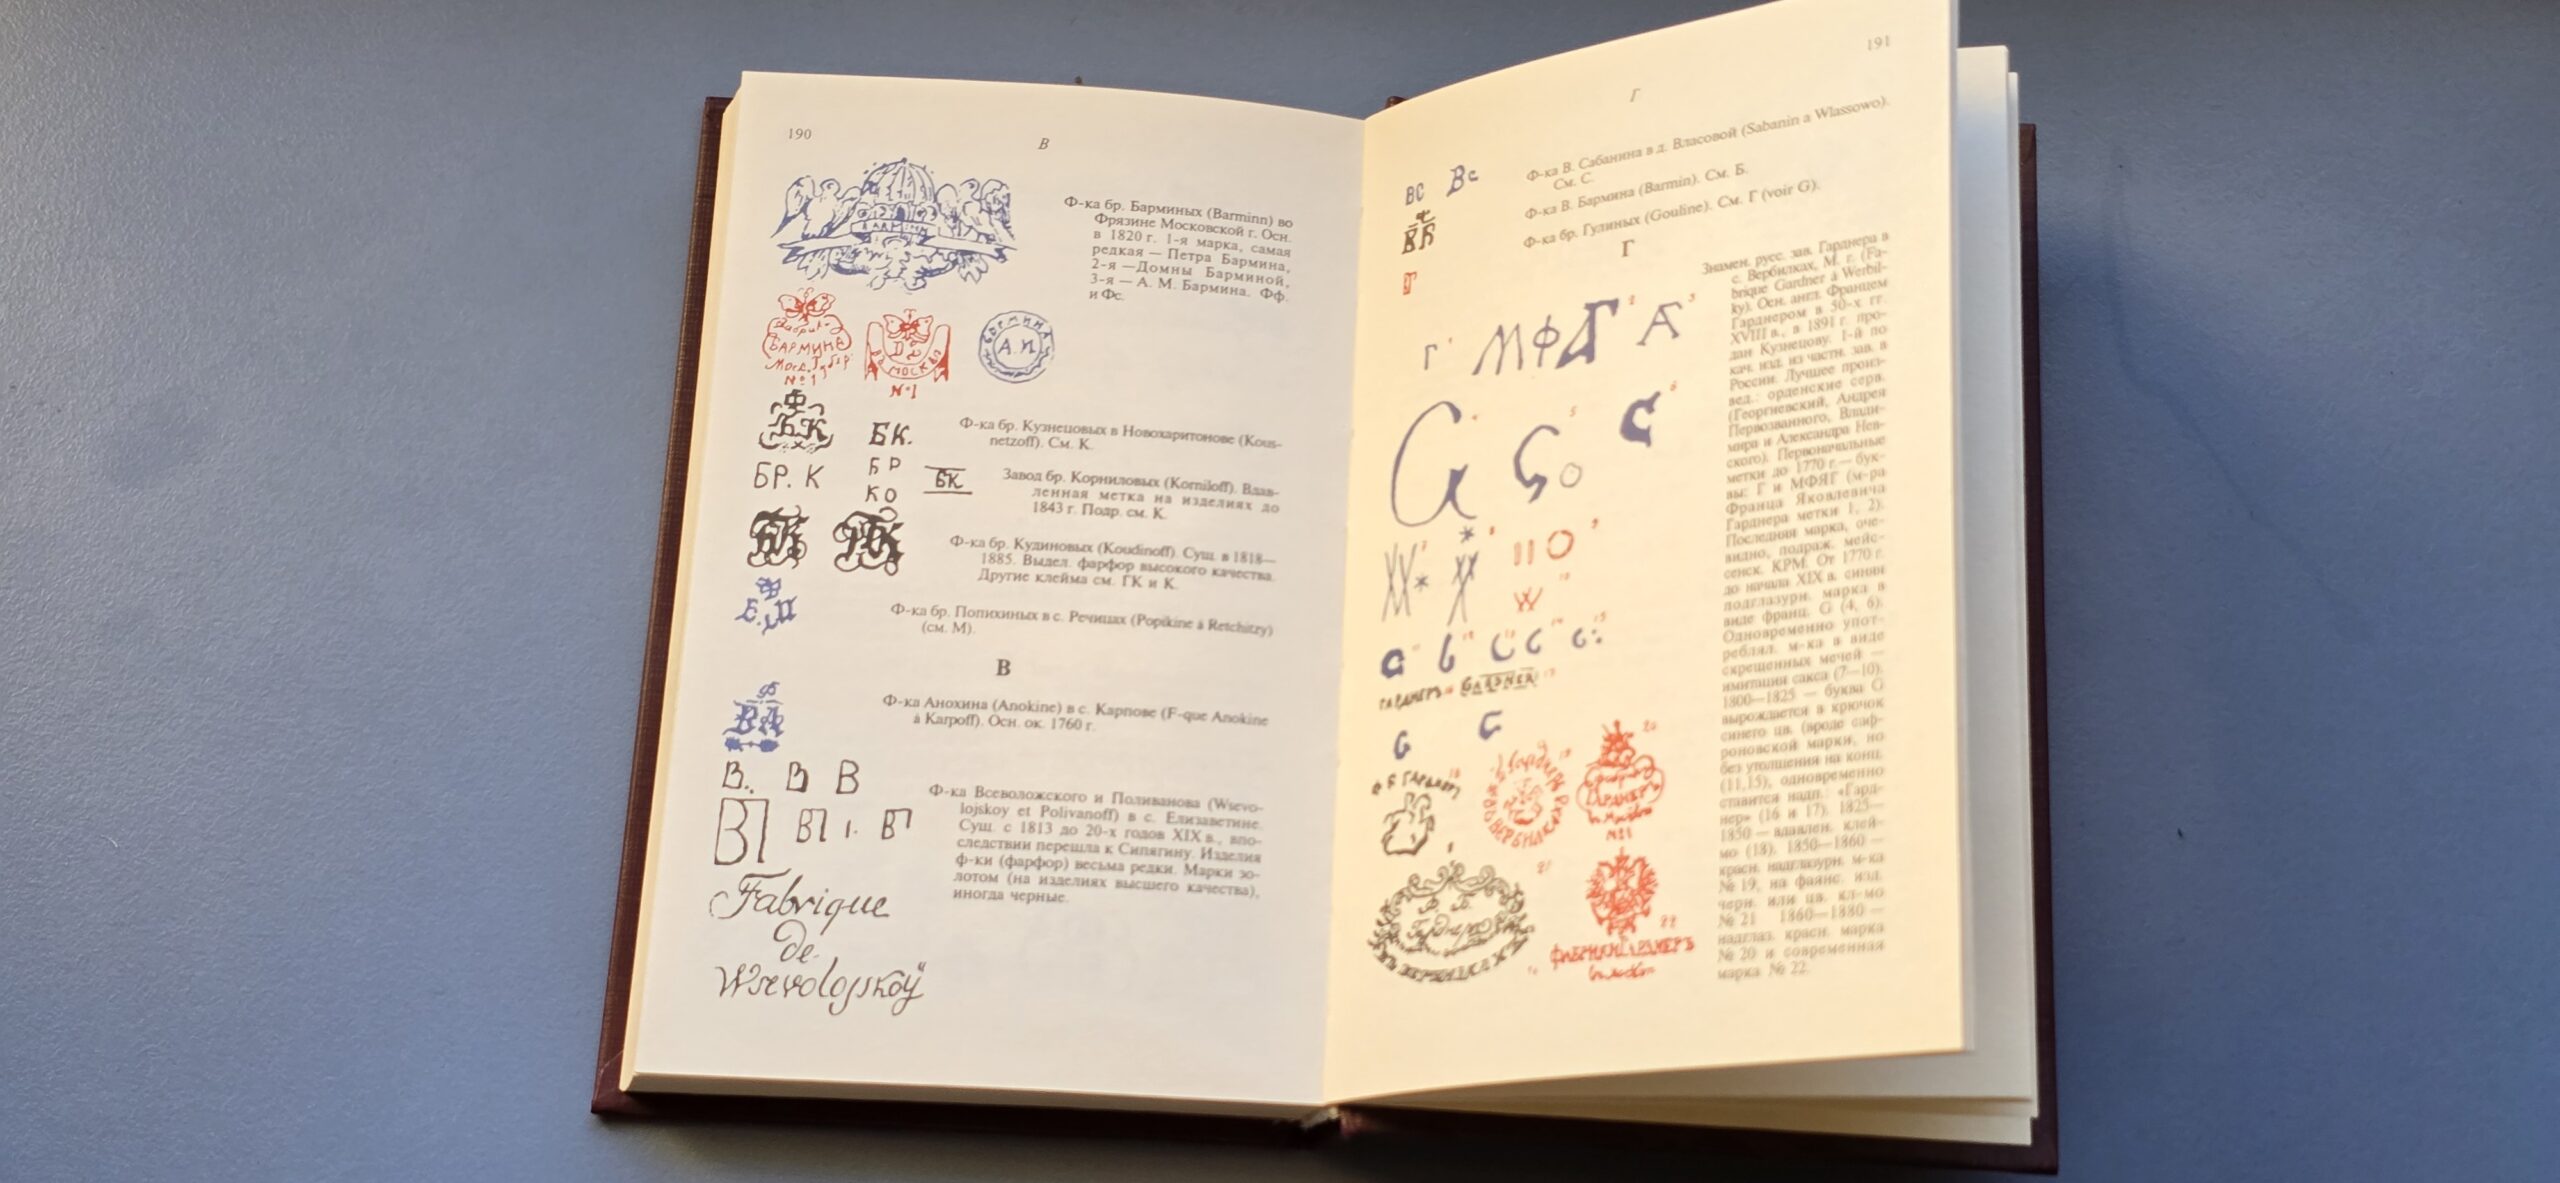 190
В
Ф-ка бр. Барминых (Barminn) во
Фрязине Московской г. Осн.
в 1820 г. 1-я марка, самая
редкая — Петра Бармина,
2-я —Домны Барминой,
3-я — А. М. Бармина. Фф.
и Фс.
БАРМИНЪ
№1
МОСКВА
№1
А.П.
БК
БК.
Ф-ка бр. Кузнецовых в Новохаритонове (Kous-
netzoff). См. К.
БР. К
БР
КО
БК
Завод бр. Корниловых (Korniloff). Вдав-
ленная метка на изделиях до
1843 г. Подр. см. К.
Ф-ка бр. Кудиновых (Koudinoff). Сущ. в 1818—
1885. Выдел. фарфор высокого качества.
Другие клейма см. ГК и К.
Ф-ка бр. Попихиных в с. Речицах (Popikine à Retchitzy)
(см. М).
В
Ф-ка Анохина (Anokine) в с. Карпове (F-que Anokine
à Karpoff). Осн. ок. 1760 г.
В. В В
ВП ВП ВП
Ф-ка Всеволожского и Поливанова (Wsevo-
lojskoy et Polivanoff) в с. Елизаветине.
Сущ. с 1813 до 20-х годов XIX в., впо-
следствии перешла к Сипягину. Изделия
ф-ки (фарфор) весьма редки. Марки зо-
лотом (на изделиях высшего качества),
иногда черные.
Fabrique
de
Wsevolojskoÿ
191
Г
ВС Вс
Ф-ка В. Сабанина в д. Власовой (Sabanin a Wlassowo).
См. С.
ВБ
Ф-ка В. Бармина (Barmin). См. Б.
Ф-ка бр. Гулиных (Gouline). См. Г (voir G).
Г
Знамен. русс. зав. Гарднера в
с. Вербилках, М. г. (Fa-
brique Gardner à Werbil-
ky). Осн. англ. Францем
Гарднером в 50-х гг.
XVIII в., в 1891 г. про-
дан Кузнецову. 1-й по
кач. изд. из частн. зав. в
России. Лучшее произ-
вед.: орденские серв.
(Георгиевский, Андрея
Первозванного, Влади-
мира и Александра Нев-
ского). Первоначальные
метки до 1770 г.— бук-
вы: Г и МФЯГ (м-ра
Франца Яковлевича
Гарднера метки 1, 2).
Последняя марка, оче-
видно, подраж. мейс-
сенск. KPM. От 1770 г.
до начала XIX в. синяя
подглазурн. марка в
виде франц. G (4, 6).
Одновременно упот-
реблял. м-ка в виде
скрещенных мечей —
имитация сакса (7—10).
1800—1825 — буква G
вырождается в крючок
синего цв. (вроде саф-
роновской марки, но
без утолщения на конц.
(11,15), одновременно
ставится надп.: «Гард-
нер» (16 и 17). 1825—
1850 — вдавлен. клей-
мо (18). 1850—1860 —
красн. надглазурн. м-ка
№ 19, на фаянс. изд.
черн. или цв. кл-мо
№ 21 1860—1880 —
надглаз. красн. марка
№ 20 и современная
марка № 22.
ГАРДНЕРЪ GARDNER
ГАРДНЕР
ГАРДНЕРЪ
№1
ФАБРИКИ ГАРДНЕРЪ